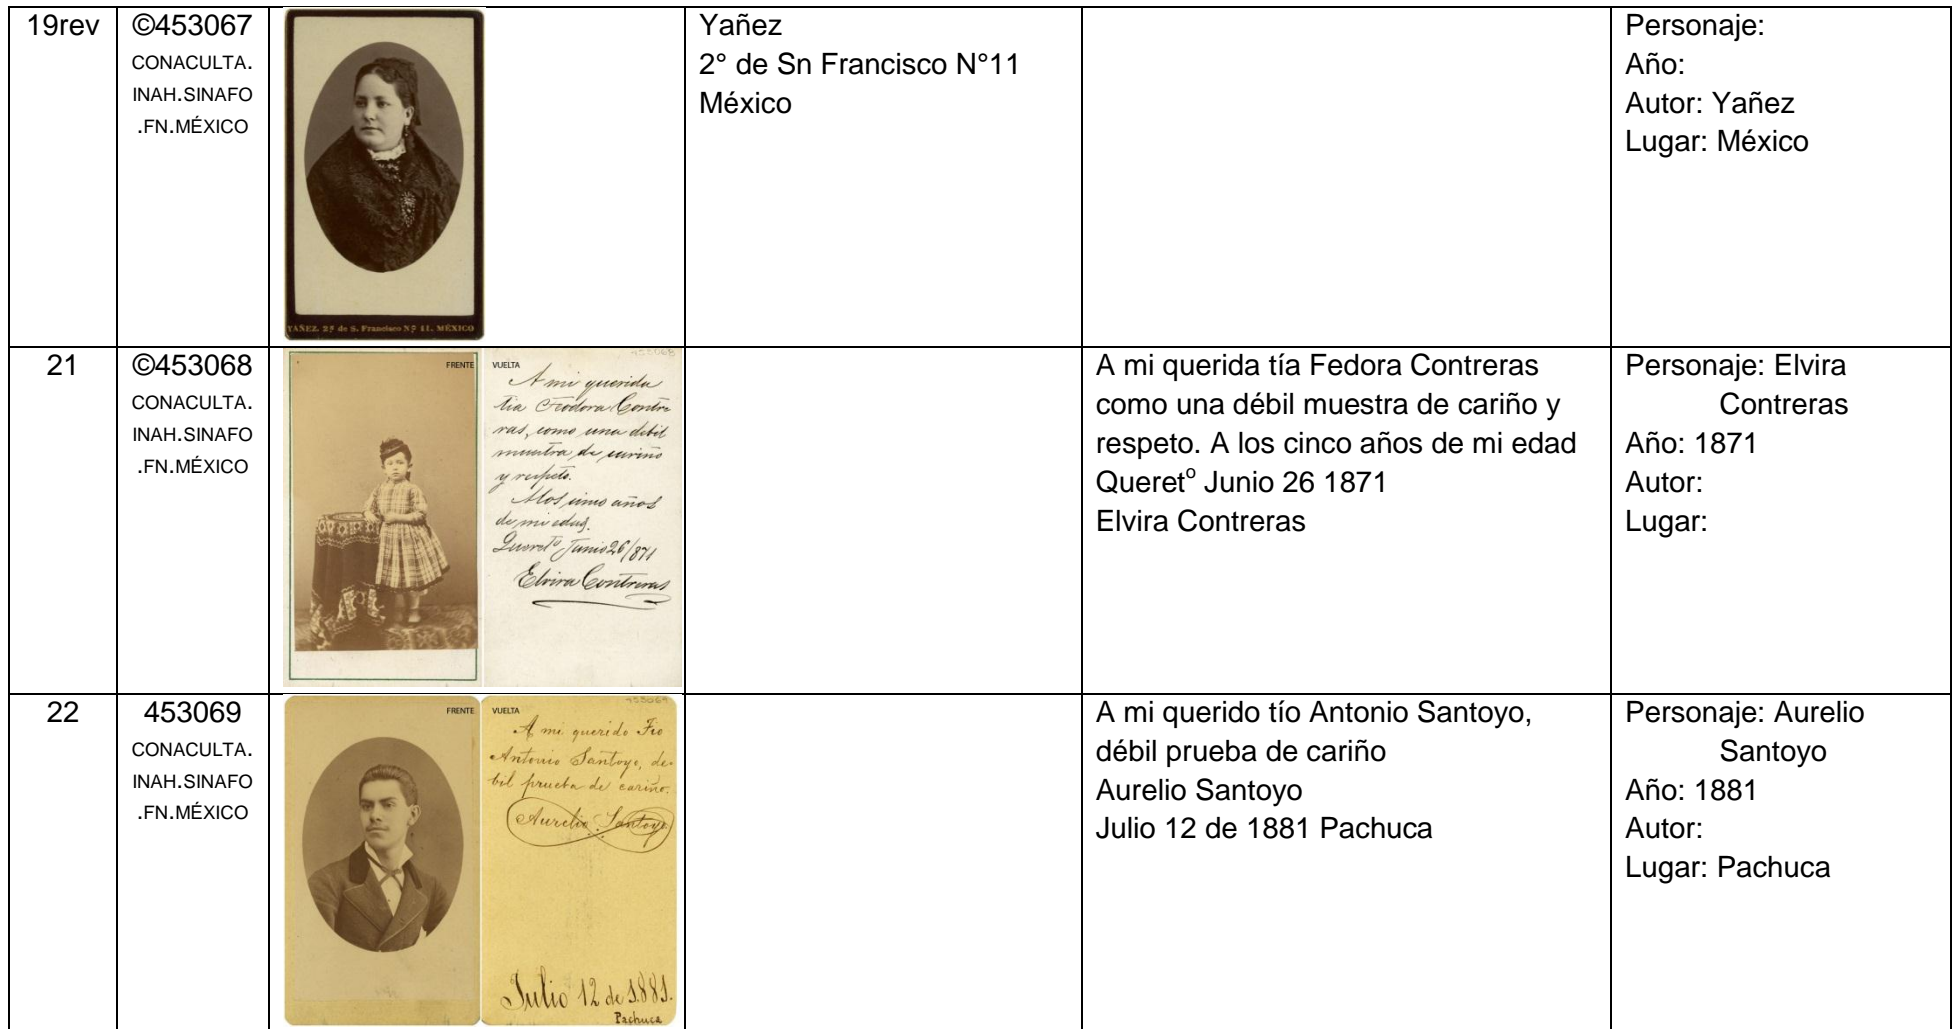 19rev
©453067
CONACULTA.
INAH.SINAFO
.FN.MÉXICO
YAÑEZ. 2ª de S. Francisco Nº 11. MÉXICO
Yañez
2° de Sn Francisco N°11
México
Personaje:
Año:
Autor: Yañez
Lugar: México
21
©453068
CONACULTA.
INAH.SINAFO
.FN.MÉXICO
FRENTE
VUELTA
453068
A mi querida
tia Feodora Contre
ras, como una debil
muestra de cariño
y respeto.
A los cinco años
de mi edad.
Queretº Junio 26/871
Elvira Contreras
A mi querida tía Fedora Contreras
como una débil muestra de cariño y
respeto. A los cinco años de mi edad
Queretº Junio 26 1871
Elvira Contreras
Personaje: Elvira
Contreras
Año: 1871
Autor:
Lugar:
22
453069
CONACULTA.
INAH.SINAFO
.FN.MÉXICO
FRENTE
VUELTA
453069
A mi querido Tio
Antonio Santoyo, de-
bil prueba de cariño.
Aurelio Santoyo
Julio 12 de 1881.
Pachuca
A mi querido tío Antonio Santoyo,
débil prueba de cariño
Aurelio Santoyo
Julio 12 de 1881 Pachuca
Personaje: Aurelio
Santoyo
Año: 1881
Autor:
Lugar: Pachuca